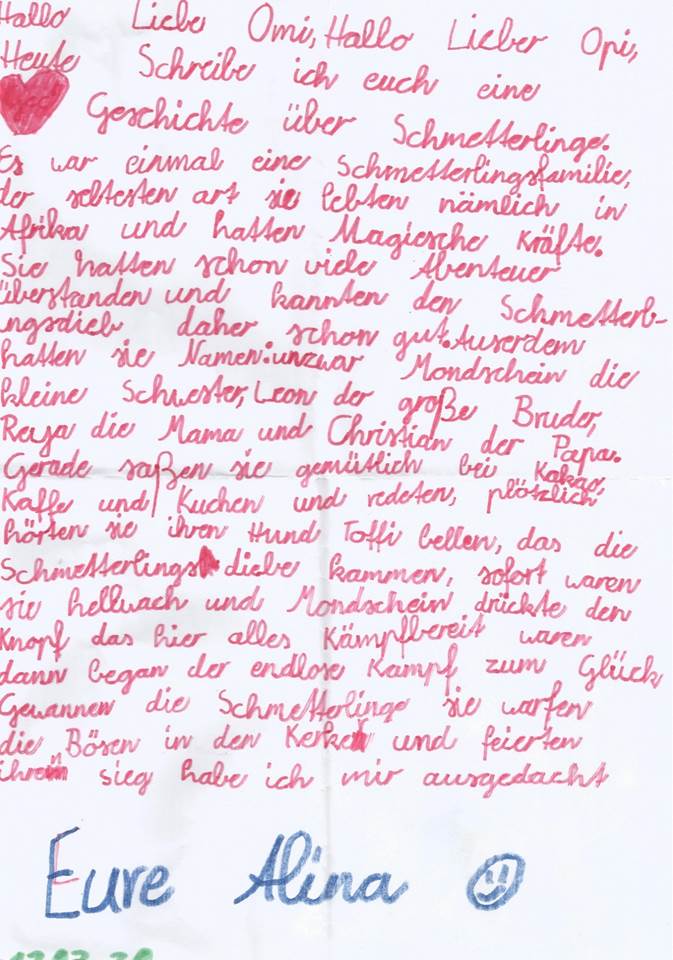 Hallo Liebe Omi, Hallo Lieber Opi,
Heute Schreibe ich euch eine
Geschichte über Schmetterlinge.
Es war einmal eine Schmetterlingsfamilie,
der seltesten art sie lebten nämlich in
Afrika und hatten Magiesche Kräfte.
Sie hatten schon viele Abenteuer
überstanden und kannten den Schmetterl-
ingsdieb daher schon gut. Auserdem
hatten sie Namen: unzwar Mondschein die
kleine Schwester, Leon der große Bruder,
Reya die Mama und Christian der Papa.
Gerade saßen sie gemütlich bei Kakao,
Kaffe und Kuchen und redeten, plötzlich
hörten sie ihren Hund Toffi bellen, das die
Schmetterlings diebe kammen, sofort waren
sie hellwach und Mondschein drückte den
Knopf das hier alles Kämpfbereit waren
dann began der endlose Kampf zum Glück
Gewannen die Schmetterlinge sie warfen
die Bösen in den Kerker und feierten
ihren sieg habe ich mir ausgedacht
Eure Alina